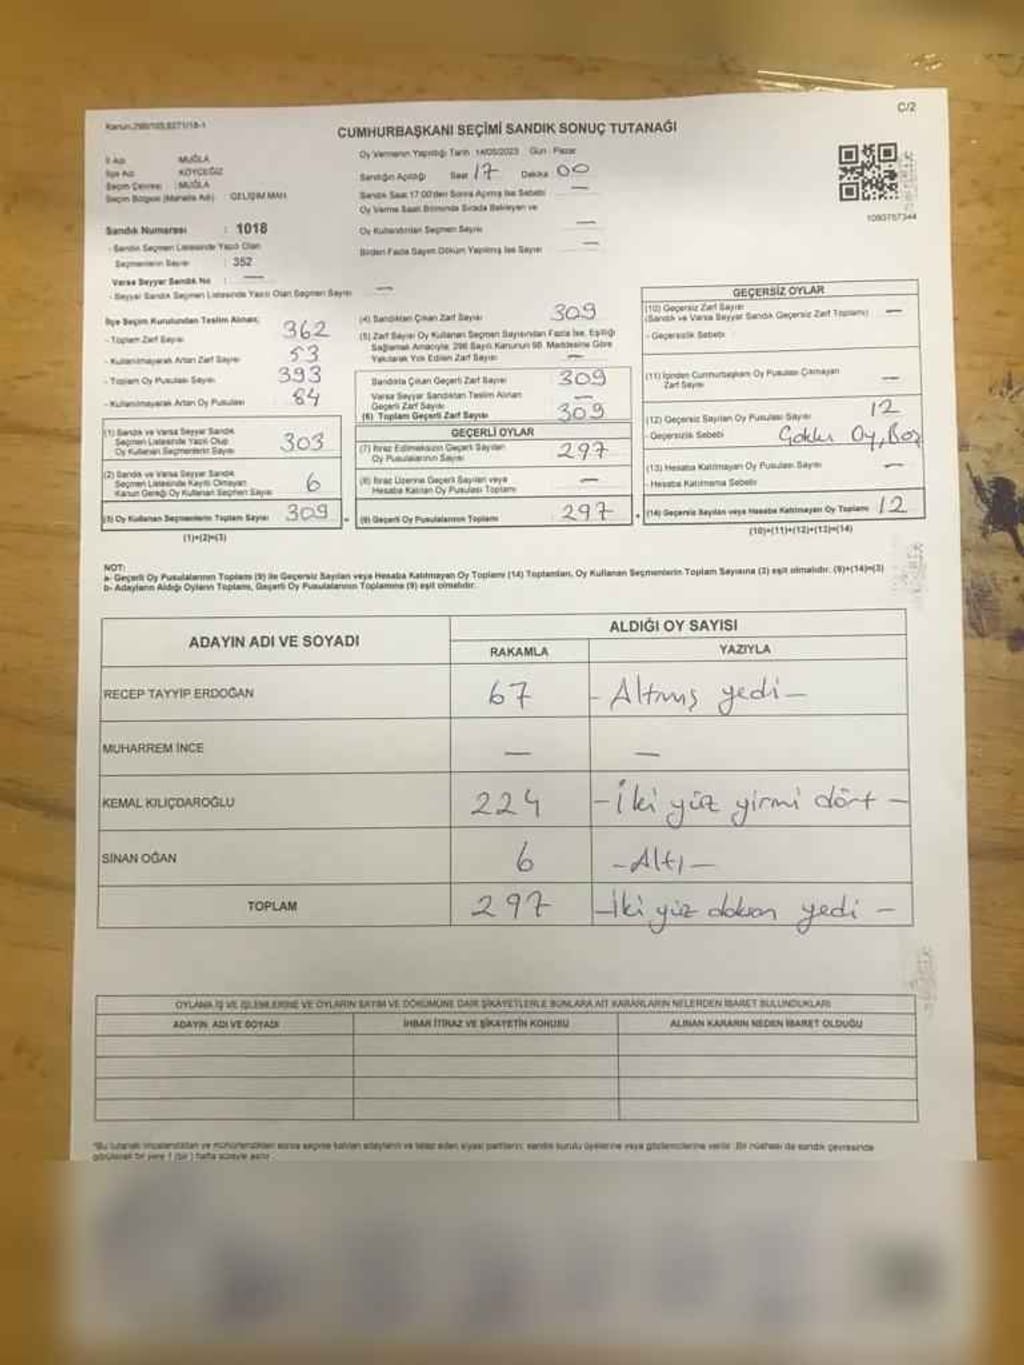 C/2
Kanun:298/105,6271/18-1
CUMHURBAŞKANI SEÇİMİ SANDIK SONUÇ TUTANAĞI
İl Adı : MUĞLA
İlçe Adı : KÖYCEĞİZ
Seçim Çevresi : MUĞLA
Seçim Bölgesi (Mahalle Adı) : GELİŞİM MAH.
Sandık Numarası : 1018
- Sandık Seçmen Listesinde Yazılı Olan
Seçmenlerin Sayısı : 352
Varsa Seyyar Sandık No : —
- Seyyar Sandık Seçmen Listesinde Yazılı Olan Seçmen Sayısı —
Oy Vermenin Yapıldığı Tarih : 14/05/2023 Gün : Pazar
Sandığın Açıldığı Saat 17 Dakika 00
Sandık Saat 17:00'den Sonra Açılmış İse Sebebi —
Oy Verme Saati Bitiminde Sırada Bekleyen ve
Oy Kullandırılan Seçmen Sayısı —
Birden Fazla Sayım Döküm Yapılmış İse Sayısı —
1093757344
İlçe Seçim Kurulundan Teslim Alınan;
- Toplam Zarf Sayısı 362
- Kullanılmayarak Artan Zarf Sayısı 53
- Toplam Oy Pusulası Sayısı 393
- Kullanılmayarak Artan Oy Pusulası 84
(1) Sandık ve Varsa Seyyar Sandık
Seçmen Listesinde Yazılı Olup
Oy Kullanan Seçmenlerin Sayısı 303
(2) Sandık ve Varsa Seyyar Sandık
Seçmen Listesinde Kayıtlı Olmayan
Kanun Gereği Oy Kullanan Seçmen Sayısı 6
(3) Oy Kullanan Seçmenlerin Toplam Sayısı 309
(1)+(2)=(3)
(4) Sandıktan Çıkan Zarf Sayısı 309
(5) Zarf Sayısı Oy Kullanan Seçmen Sayısından Fazla İse, Eşitliği
Sağlamak Amacıyla, 298 Sayılı Kanunun 98. Maddesine Göre
Yakılarak Yok Edilen Zarf Sayısı —
Sandıkta Çıkan Geçerli Zarf Sayısı 309
Varsa Seyyar Sandıktan Teslim Alınan
Geçerli Zarf Sayısı —
(6) Toplam Geçerli Zarf Sayısı 309
GEÇERLİ OYLAR
(7) İtiraz Edilmeksizin Geçerli Sayılan
Oy Pusulalarının Sayısı 297
(8) İtiraz Üzerine Geçerli Sayılan veya
Hesaba Katılan Oy Pusulası Toplamı —
(9) Geçerli Oy Pusulalarının Toplamı 297
GEÇERSİZ OYLAR
(10) Geçersiz Zarf Sayısı
(Sandık ve Varsa Seyyar Sandık Geçersiz Zarf Toplamı) —
- Geçersizlik Sebebi
(11) İçinden Cumhurbaşkanı Oy Pusulası Çıkmayan
Zarf Sayısı —
(12) Geçersiz Sayılan Oy Pusulası Sayısı 12
- Geçersizlik Sebebi Oy, Boş
(13) Hesaba Katılmayan Oy Pusulası Sayısı —
- Hesaba Katılmama Sebebi
(14) Geçersiz Sayılan veya Hesaba Katılmayan Oy Toplamı 12
(10)+(11)+(12)+(13)=(14)
NOT:
a- Geçerli Oy Pusulalarının Toplamı (9) ile Geçersiz Sayılan veya Hesaba Katılmayan Oy Toplamı (14) Toplamları, Oy Kullanan Seçmenlerin Toplam Sayısına (3) eşit olmalıdır. (9)+(14)=(3)
b- Adayların Aldığı Oyların Toplamı, Geçerli Oy Pusulalarının Toplamına (9) eşit olmalıdır.
ADAYIN ADI VE SOYADI
ALDIĞI OY SAYISI
RAKAMLA YAZIYLA
RECEP TAYYİP ERDOĞAN 67 - Altmış yedi -
MUHARREM İNCE — —
KEMAL KILIÇDAROĞLU 224 - İki yüz yirmi dört -
SİNAN OĞAN 6 - Altı -
TOPLAM 297 - İki yüz doksan yedi -
OYLAMA İŞ VE İŞLEMLERİNE VE OYLARIN SAYIM VE DÖKÜMÜNE DAİR ŞİKAYETLERLE BUNLARA AİT KARARLARIN NELERDEN İBARET BULUNDUKLARI
ADAYIN ADI VE SOYADI İHBAR İTİRAZ VE ŞİKAYETİN KONUSU ALINAN KARARIN NEDEN İBARET OLDUĞU
*Bu tutanak imzalandıktan ve mühürlendikten sonra seçime katılan adayların ve talep eden siyasi partilerin, sandık kurulu üyelerine veya gözlemcilerine verilir. Bir nüshası da sandık çevresinde
görülecek bir yere 1 (bir) hafta süreyle asılır.